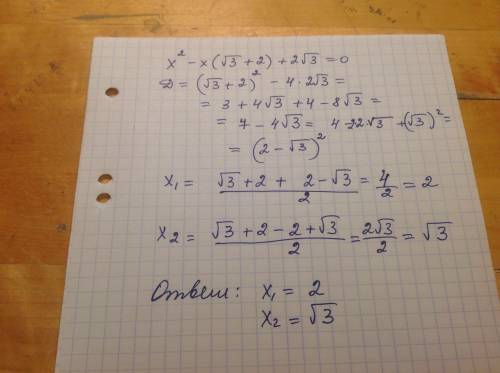 x² - x(√3 + 2) + 2√3 = 0
D = (√3 + 2)² - 4 · 2√3 =
= 3 + 4√3 + 4 - 8√3 =
= 7 - 4√3 = 4 - 2·2·√3 + (√3)² =
= (2 - √3)²
x₁ = (√3 + 2 + 2 - √3)/2 = 4/2 = 2
x₂ = (√3 + 2 - 2 + √3)/2 = 2√3/2 = √3
Ответ: x₁ = 2
x₂ = √3